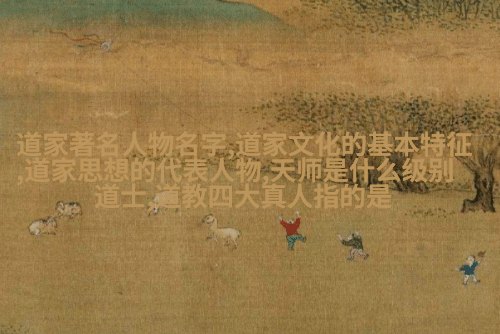 道家著名人物名字,道家文化的基本特征
,道家思想的代表人物,天师是什么级别
道士,道教四大真人指的是